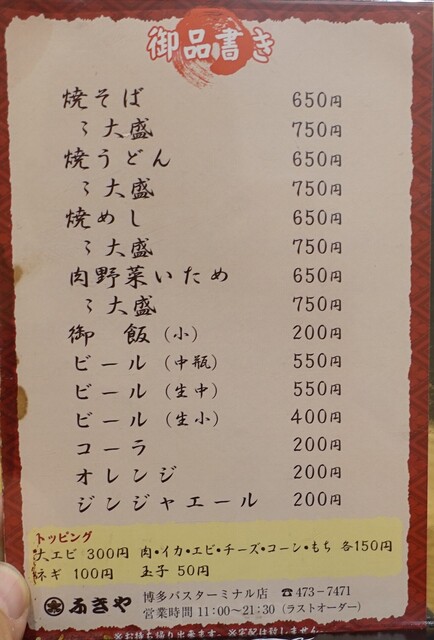 御品書き
焼そば 650円
〃大盛 750円
焼うどん 650円
〃大盛 750円
焼めし 650円
〃大盛 750円
肉野菜いため 650円
〃大盛 750円
御飯(小) 200円
ビール(中瓶) 550円
ビール(生中) 550円
ビール(生小) 400円
コーラ 200円
オレンジ 200円
ジンジャエール 200円
トッピング
大エビ 300円 肉・イカ・エビ・チーズ・コーン・もち 各150円
ネギ 100円 玉子 50円
ふきや 博多バスターミナル店 ☎473-7471
営業時間 11:00〜21:30(ラストオーダー)
※お持ち帰り出来ます。※宅配は致しません。